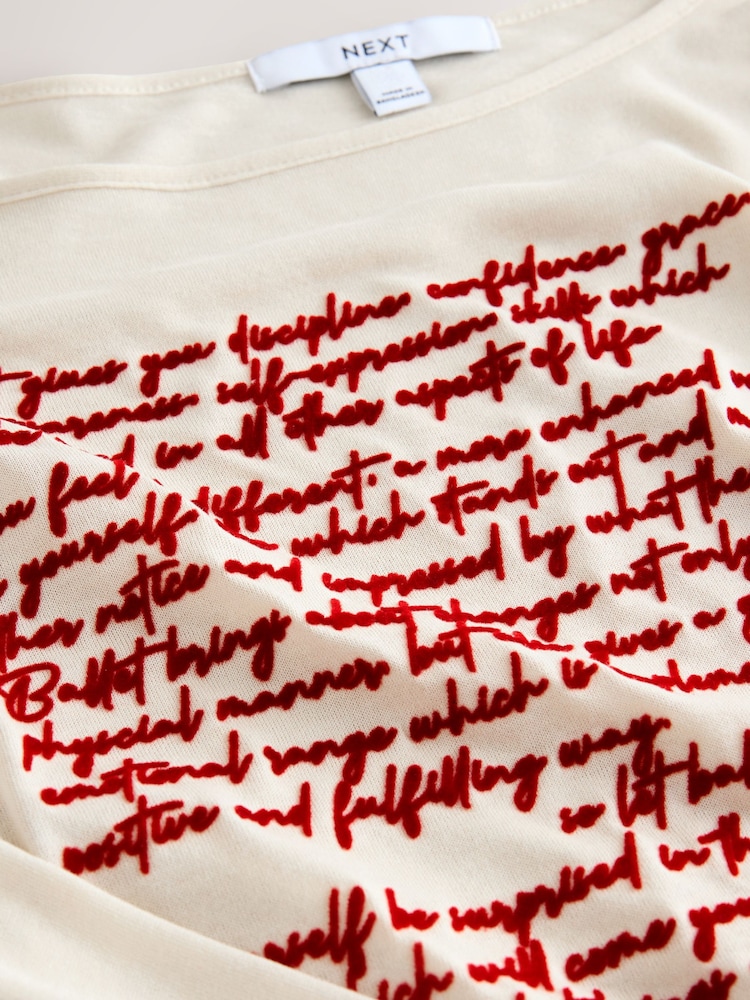 NEXT
MADE IN
BANGLADESH
gives you discipline confidence grace
awareness self-expression skills which
you feel in all other aspects of life
yourself different, a more enhanced
which stands out and
other notice and impressed by what the
Ballet brings about changes not only
physcial manner but gives a
emotional range which is
positive and fulfilling way.
so let bal
self be surprised in th
will come you